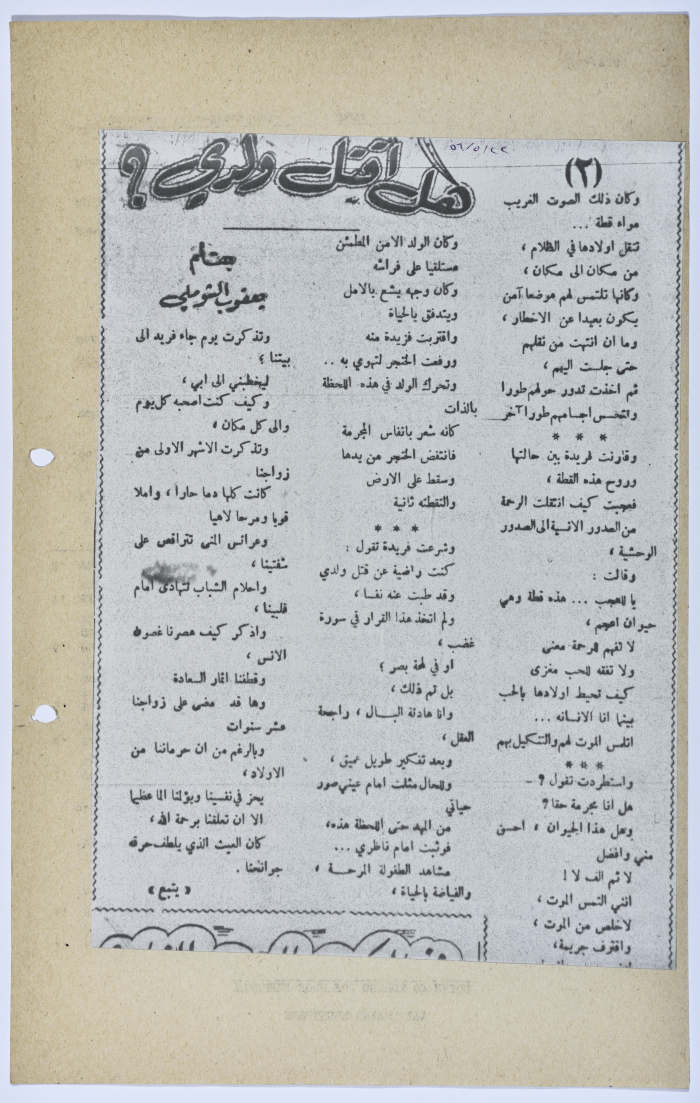 ٥٦/٥/٢٢
هل أقتل ولدي ؟
بقلم
يعقوب الشوملي
(٢)
وكان ذلك الصوت الغريب
مواء قطة ...
تنقل اولادها في الظلام ،
من مكان الى مكان ،
وكانها تلتمس لهم موضعا آمن
يكون بعيدا عن الاخطار ،
وما ان انتهت من نقلهم
حتى جلست اليهم ،
ثم اخذت تدور حولهم طورا
وتتحسس اجسامهم طورا آخر
* * *
وقارنت فريدة بين حالتها
وروح هذه القطة ،
فعجبت كيف انتقلت الرحمة
من الصدور الانسية الى الصدور
الوحشية ،
وقالت :
يا للعجب ... هذه قطة وهي
حيوان اعجم ،
لا تفهم للرحمة معنى
ولا تفقه للحب مغزى
كيف تحيط اولادها بالحب
بينما انا الانسانه ...
اتلمس الموت لهم والتنكيل بهم
* * *
واستطردت تقول ? -
هل انا مجرمة حقا ?
وهل هذا الحيوان ، احسن
مني وافضل
لا ثم الف لا !
انني التمس الموت ،
لاخلص من الموت ،
واقترف جريمة،
وكان الولد الامن المطمئن
مستلقيا على فراشه
وكان وجهه يشع بالامل
ويتدفق بالحياة
واقتربت فريدة منه
ورفعت الخنجر لتهوي به ..
وتحرك الولد في هذه اللحظة
بالذات
كانه شعر بانفاس المجرمة
فانتفض الخنجر من يدها
وسقط على الارض
والتقطته ثانية
* * *
وشرعت فريدة تقول :
كنت راضية عن قتل ولدي
وقد طبت عنه نفسا ،
ولم اتخذ هذا القرار في سورة
غضب ،
او في لمحة بصر ؛
بل تم ذلك ،
وانا هادئة البال ، راجحة
العقل ،
وبعد تفكير طويل عميق ،
وللحال مثلت امام عيني صور
حياتي
من المهد حتى اللحظة هذه،
فوثبت امام ناظري ...
مشاهد الطفولة المرحة ،
والفياضة بالحياة ،
وتذكرت يوم جاء فريد الى
بيتنا ؛
ليخطبني الى ابي ،
وكيف كنت اصحبه كل يوم
والى كل مكان ،
وتذكرت الاشهر الاولى من
زواجنا
كانت كلها دما حارا ، واملا
قويا ومرحا لاهيا
وعرائس المنى تتراقص على
شفتينا ،
واحلام الشباب تتهادى امام
قلبينا ،
واذكر كيف هصرنا غصون
الانس ،
وقطفنا اثمار السعادة
وها قد مضى على زواجنا
عشر سنوات
وبالرغم من ان حرماننا من
الاولاد ،
يحز في نفسينا ويؤلمنا الما عظيما
الا ان تعلقنا برحمة الله ،
كان الغيث الذي يلطف حرقة
جوانحنا .
« يتبع »